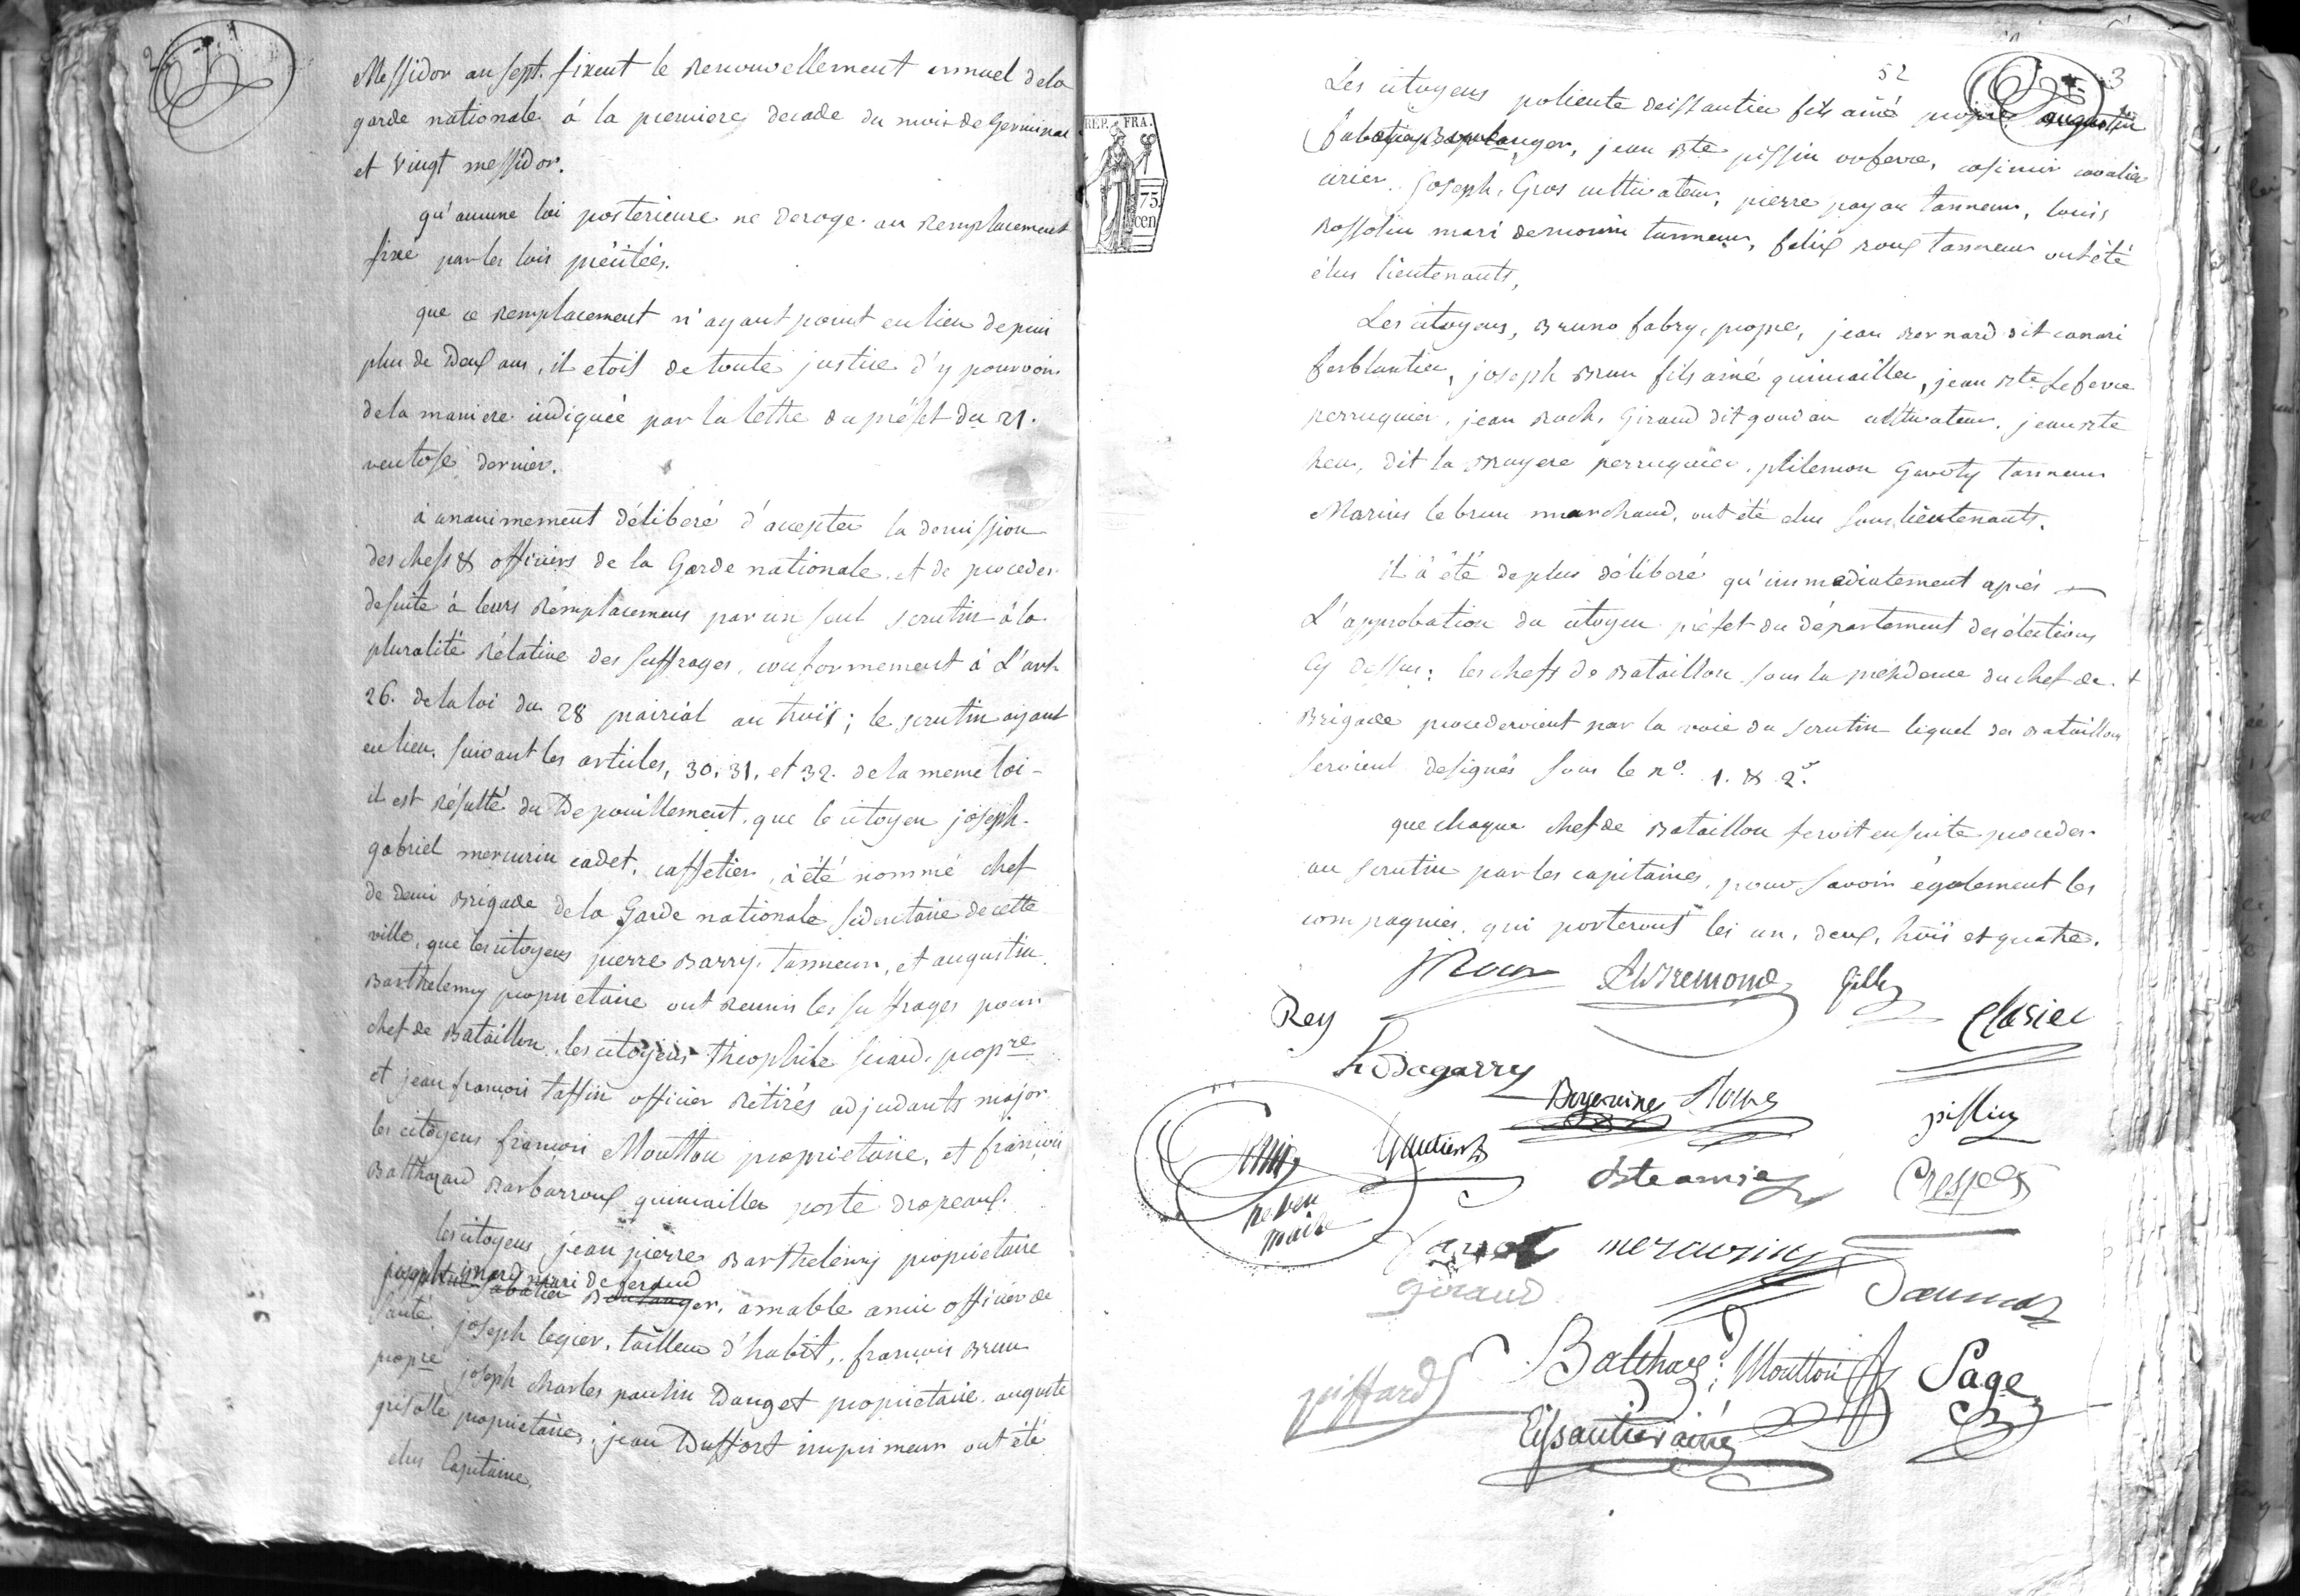 2
Messidor an sept. fixent le Renouvellement annuel dela
garde nationale à la premiere decade du mois de Germinal
et vingt messidor.
qu'aucune loi posterieure ne deroge au Remplacement
fixé par les lois précitées.
que ce Remplacement n'ayant point eu lieu depuis
plus de Deux ans, il etoit de toute justice d'y pourvoir
dela maniere indiquée par la lettre du préfet du 21.
ventose dernier.
à unanimement délibéré d'accepter la demission
des chefs & officiers de la Garde nationale, et de proceder
desuite à leurs Remplacemens par un seul scrutin à la
pluralité Rélative des suffrages, conformement à L'art
26. dela loi du 28 prairial an trois; le scrutin ayant
eu lieu, suivant les articles, 30. 31. et 32. dela meme loi -
il est Résulté du Depouillement, que le citoyen joseph
gabriel mercurin cadet, caffetier, à été nommé chef
de demi Brigade dela Garde nationale sedentaire de cette
ville, que les citoyens pierre Barry, Tanneur, et augustin
Barthelemy proprietaire ont Reunis les suffrages pour
chef de Bataillon, les citoyens theophile sicard, propre
et jean françois taffin officier Rétirés adjudants major
les citoyens françois Moutton proprietaire, et françois
Balthazard Barbarroux quincailler porte Drapeaux.
les citoyens jean pierre Barthelemy proprietaire
joseph mari de feraud
sabatier Boulanger, amable amic officier de
santé, joseph legier, tailleur d'habit, françois Brun
propre joseph charles paulin Dauget proprietaire, auguste
grisolle proprietaire, jean Duffort imprimeur ont été
elus Capitaine,
REP. FRA.
75
cen
52
3
Les citoyens policarte deissautier fils ainé propre augustin
sabatier Boulanger, jean Bte pissin orfevre, casimir cavalier
cirier, Joseph Gros cultivateur, pierre payan tanneur, louis
Rossolin mari demourin tanneur, felix roux tanneur ont été
élus lieutenants,
Les citoyens, Bruno fabry, propre, jean Bernard dit canari
ferblantier, joseph Brun fils ainé quincailler, jean Bte Lefevre
perruquier, jean Roch Giraud dit goudau cultivateur, jean Bte
heu, dit la Bruyere perruquier, philemon Gavoty tanneur
Marius lebrun marchand, ont été elus sous lieutenants.
il à été deplus délibéré qu'immediatement aprés
L'approbation du citoyen préfet du département des élections
cy dessus; les chefs de Bataillon sous la présidence du chef de
Brigade procederoient par la voie du scrutin lequel des Bataillons
seroient designés sous le no. 1. & 2.
que chaque chef de Bataillon feroit ensuite proceder
au scrutin par les capitaines, pour savoir également les
compagnies, qui porteront les un, deux, trois et quatre.
Roux
Bremond
Gilly
Rey
Clavier
Dagarry
pissin
Gautier
maire
Crespel
mercurin
giraud
Daumas
piffard
Balthazd
Moutton
Sage
Eysautier ainé